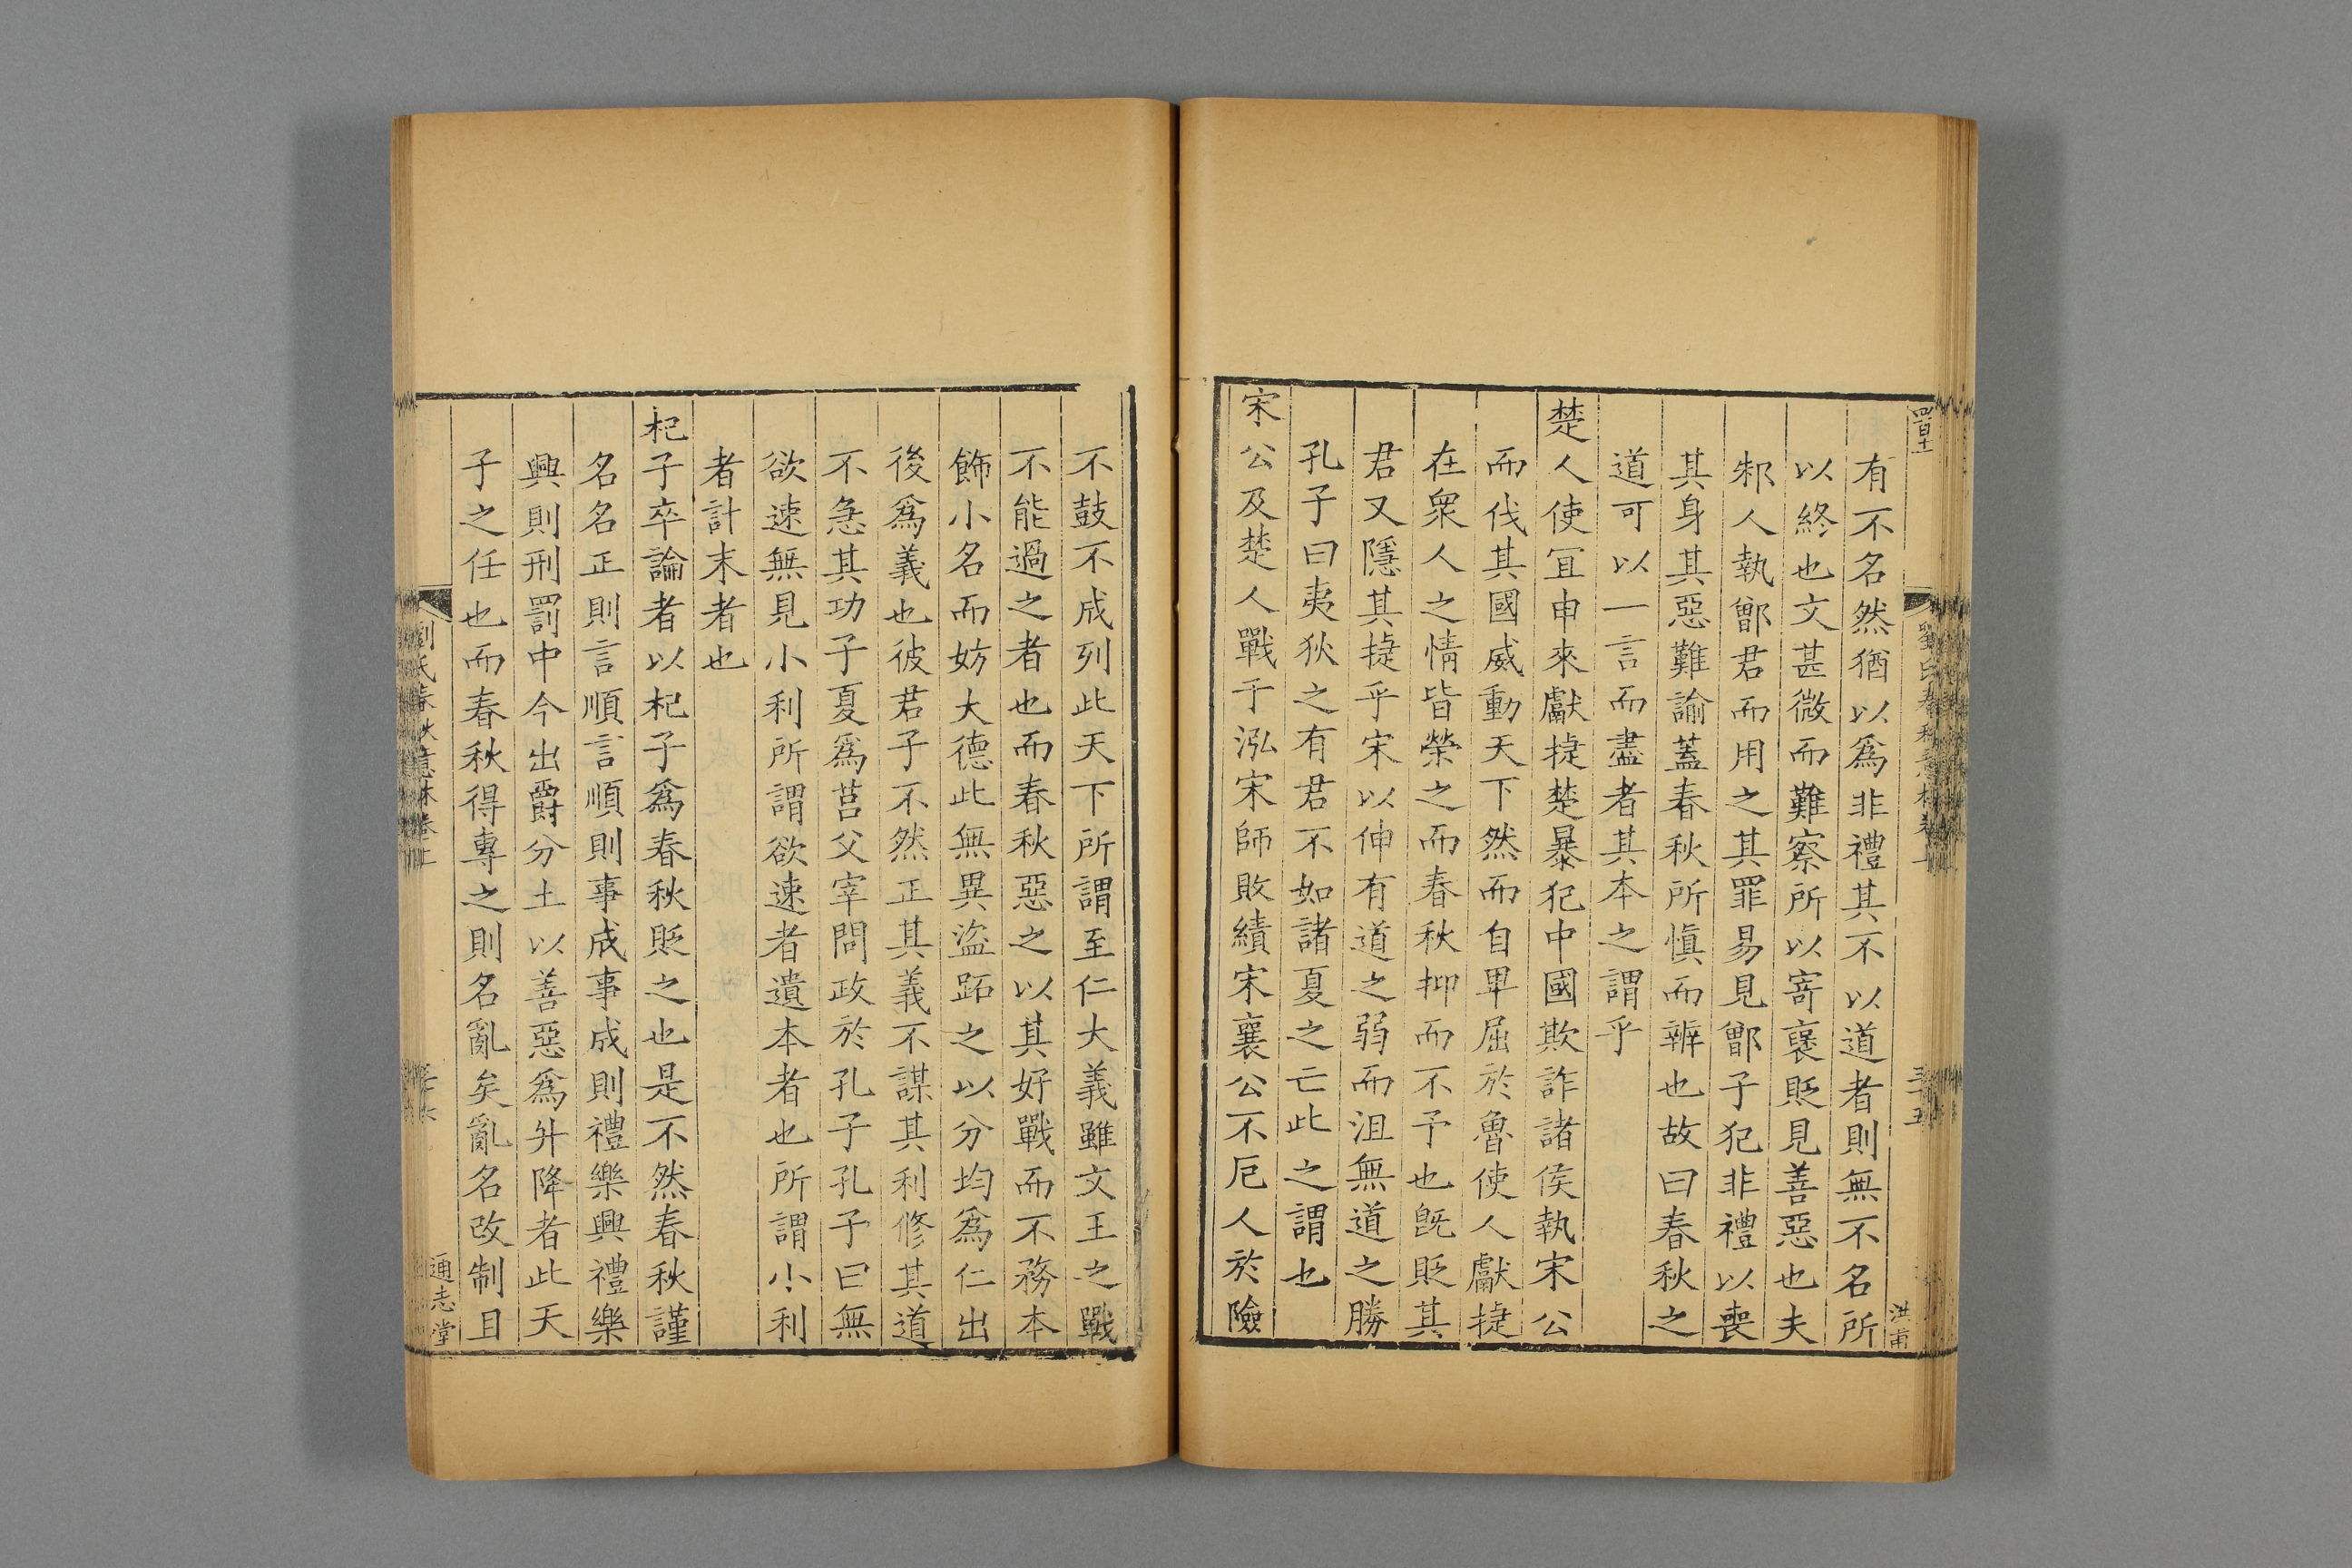 有不名然猶以爲非禮其不以道者則無不名所
以終也文甚微而難察所以寄襃貶見善惡也夫
邾人執鄫君而用之其罪易見鄫子犯非禮以喪
其身其惡難諭蓋春秋所愼而辨也故曰春秋之
道可以一言而盡者其本之謂乎
楚人使宜申來獻捷楚暴犯中國欺詐諸侯執宋公
而伐其國威動天下然而自卑屈於魯使人獻捷
在衆人之情皆榮之而春秋抑而不予也旣貶其
君又隱其捷乎宋以伸有道之弱而沮無道之勝
孔子曰夷狄之有君不如諸夏之亡此之謂也
宋公及楚人戰于泓宋師敗績宋襄公不厄人於險
洪甫
不鼓不成列此天下所謂至仁大義雖文王之戰
不能過之者也而春秋惡之以其好戰而不務本
飾小名而妨大德此無異盜跖之以分均爲仁出
後爲義也彼君子不然正其義不謀其利修其道
不急其功子夏爲莒父宰問政於孔子孔子曰無
欲速無見小利所謂欲速者遺本者也所謂小利
者計末者也
杞子卒論者以杞子爲春秋貶之也是不然春秋謹
名名正則言順言順則事成事成則禮樂興禮樂
興則刑罰中今出爵分土以善惡爲升降者此天
子之任也而春秋得專之則名亂矣亂名改制且
劉氏春秋意林卷上
通志堂